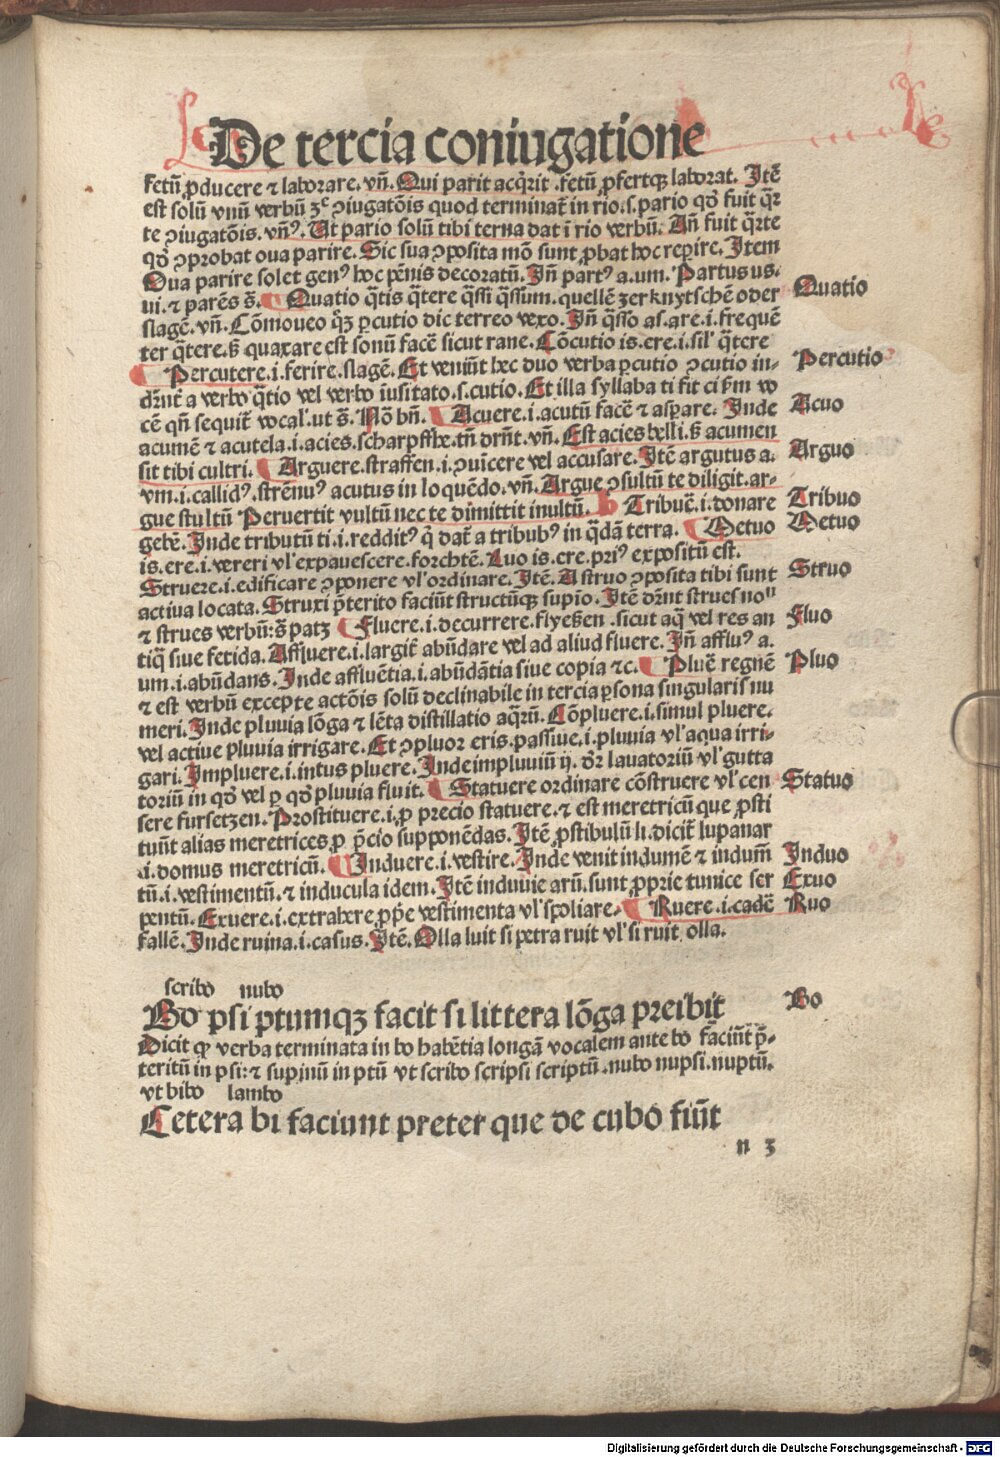 De tercia coniugatione
fetũ ꝓducere ⁊ laborare. vñ. Qui parit acq̄rit .fetũ ꝓfertqꝫ laborat. Itẽ
est solũ vnũ verbũ ꝫͨ ꝯiugatõis quod terminat̃ in rio.s. pario qđ fuit q̄r
te ꝯiugatõis. vñꝰ. Ut pario solũ tibi terna dat ĩ rio verbũ. Añ fuit q̄rte
qđ ꝯprobat oua parire. Sic sua ꝯposita mõ sunt ꝓbat hoc reꝑire. Item
Oua parire solet genꝰ hoc pẽnis decoratũ. Iñ partꝰ a.um. Partus us.
ui. ⁊ parẽs s̃. Quatio q̄tis q̄tere q̄ssi q̄ssum. quellẽ zerknytschẽ oder
slagẽ. vñ. Cõmoueo q̄ꝫ ꝑcutio dic terreo vexo. Iñ q̄sso as.are.i. frequẽ
ter q̄tere. ꝫ quaxare est sonũ facẽ sicut rane. Cõcutio is.ere.i. sil' q̄tere
Percutere.i. ferire. slagẽ. Et veniũt hec duo verba ꝑcutio ꝯcutio in-
dr̃nt̃ a verbo q̄tio vel verbo ĩusitato.s. cutio. Et illa syllaba ti fit ci ẜm vo
cẽ qñ sequit̃ vocal'. ut s̃. Nõ bñ. Acuere.i. acutũ facẽ ⁊ asꝑare. Inde
acumẽ ⁊ acutela.i. acies. scharpffhe. tñ dr̃nt. vñ. Est acies belli. ꝫ acumen
sit tibi cultri. Arguere. straffen.i. ꝯuĩcere vel accusare. Itẽ argutus a.
vm.i. callidꝰ. strẽnuꝰ acutus in loquẽdo. vñ. Argue ꝯsultũ te diligit. ar-
gue stultũ Peruertit vultũ nec te dimittit inultũ. Tribuẽ.i. donare
gebẽ. Inde tributũ ti.i. redditꝰ q̄ dat̃ a tribubꝰ in q̄dã terra. Metuo
is.ere.i. vereri vl' expauescere. forchtẽ. Luo is.ere. priꝰ expositũ est.
Struere.i. edificare ꝯponere vl' ordinare. Itẽ. Astruo ꝯposita tibi sunt
actiua locata. Struxi p̃terito faciũt structũqꝫ supĩo. Itẽ dr̃nt strues noⁿ
⁊ strues verbũ: s̃ patꝫ Fluere.i. decurrere. flyeßen .sicut aq̄ vel res an
tiq̄ siue fetida. Affluere.i. largit̃ abũdare vel ad aliud fluere. Iñ affluꝰ a.
um.i. abũdans. Inde affluẽtia.i. abũdãtia siue copia ⁊c. Pluẽ regnẽ
⁊ est verbũ excepte actõis solũ declinabile in tercia ꝑsona singularis nu
meri. Inde pluuia lõga ⁊ lẽta distillatio aq̄rũ. Cõpluere.i. simul pluere.
vel actiue pluuia irrigare. Et ꝯpluor eris. passiue.i. pluuia vl' aqua irri-
gari. Impluere.i. intus pluere. Inde impluuiũ ij. dr̃ lauatoriũ vl' gutta
toriũ in qđ vel ꝑ qđ pluuia fluit. Statuere ordinare cõstruere vl' cen
sere fursetzen. Prostituere.i. ꝓ precio statuere. ⁊ est meretricũ que ꝓsti
tuũt alias meretrices ꝓ p̃cio supponẽdas. Itẽ ꝓstibulũ li. dicit̃ lupanar
.i. domus meretricũ. Induere.i. vestire. Inde venit indumẽ ⁊ indum̃
tũ.i. vestimentũ. ⁊ inducula idem. Itẽ induuie arũ. sunt ꝓprie tunice ser
pentũ. Exuere.i. extrahere ꝓp̃e vestimenta vl' spoliare. Ruere.i. cadẽ
fallẽ. Inde ruina.i. casus. Itẽ. Olla luit si petra ruit vl' si ruit olla.
Quatio
Percutio
Acuo
Arguo
Tribuo
Metuo
Struo
Fluo
Pluo
Statuo
Induo
Exuo
Ruo
scribo nubo
Bo psi ptumqꝫ facit si littera lõga preibit
Bo
Dicit qꝙ verba terminata in bo habẽtia longã vocalem ante bo faciũt p̃-
teritũ in psi: ⁊ supinũ in ptũ vt scribo scripsi scriptũ. nubo nupsi. nuptũ.
vt bibo lambo
Cetera bi faciunt preter que de cubo fiũt
n 3
Digitalisierung gefördert durch die Deutsche Forschungsgemeinschaft - DFG